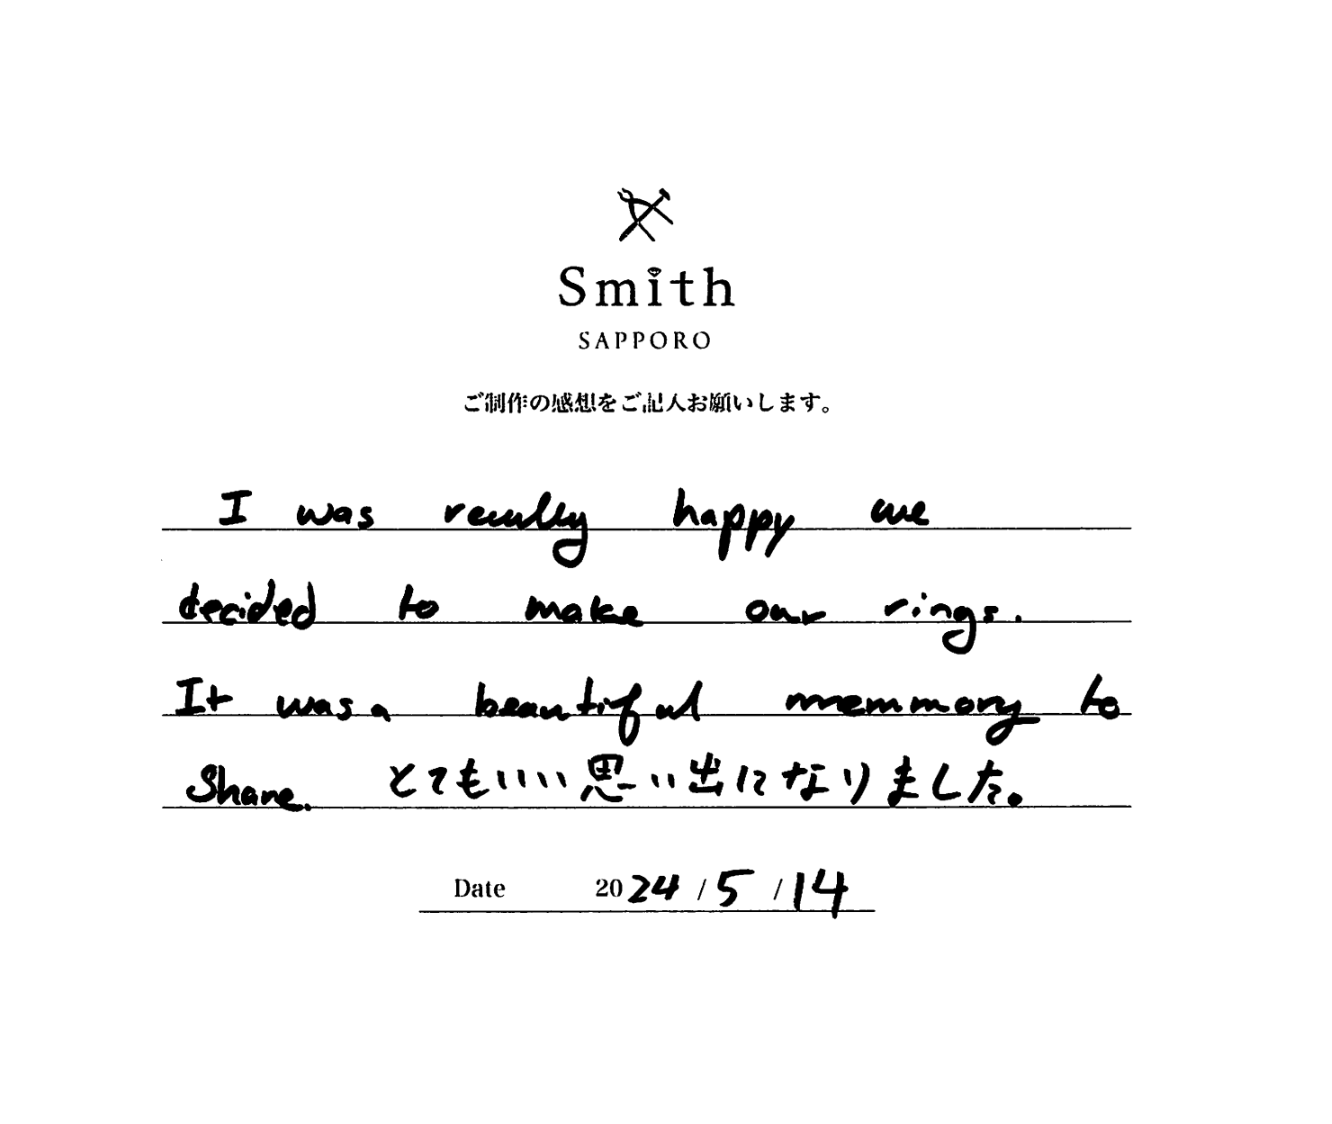 Smith
SAPPORO
ご制作の感想をご記入お願いします。
I was really happy we
decided to make our rings.
It was a beautiful memmory to
Share. とてもいい思い出になりました。
Date 2024/5/14